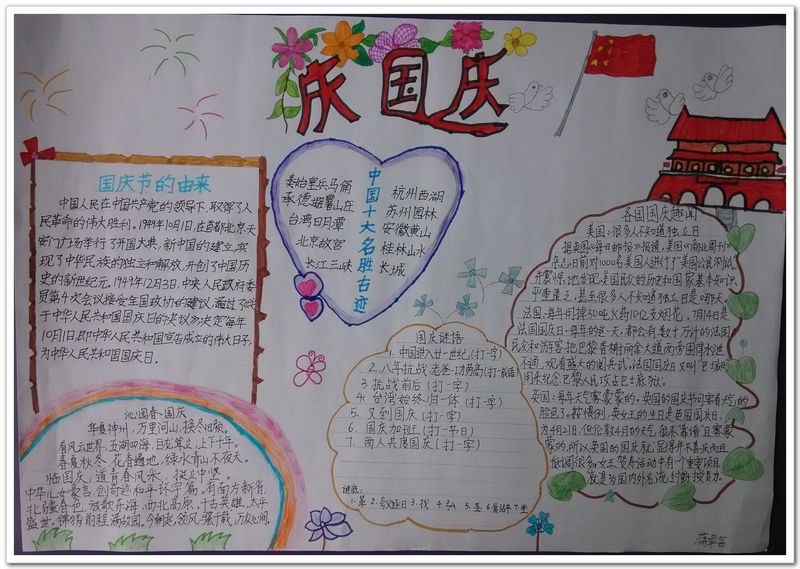 庆国庆
国庆节的由来
中国人民在中国共产党的领导下,取得了人
民革命的伟大胜利。1949年10月1日,在首都北京天
安门广场举行了开国大典,新中国的建立,实
现了中华民族的独立和解放,开创了中国历
史的新世纪元。1949年12月3日,中央人民政府委
员第4次会议接受全国政协的建议,通过了关
于中华人民共和国国庆日的决议》决定每年
10月1日,即中华人民共和国宣告成立的伟大日子,
为中华人民共和国国庆日。
中国十大名胜古迹
秦始皇兵马俑
承德避暑山庄
台湾日月潭
北京故宫
长江三峡
杭州西湖
苏州园林
安徽黄山
桂林山水
长城
各国国庆趣闻
美国:很多人不知道独立日
据英国《每日邮报》报道,美国《商业周刊》
杂志日前对1000名美国人进行了美国公民测试,
美国民众的历史和国家基本知识
严重匮乏,甚至很多人不知道独立日是哪天。
法国:每年用掉50吨火药10亿支烟花,7月14日是
法国国庆日,每年的这一天,都会有数十万计的法国
民众和游客把巴黎香榭丽舍大道两旁围得水泄
不通,观看盛大的阅兵式。法国国庆又叫"巴士底日"
用来纪念巴黎人民攻占巴士底狱。
英国:每年天气
脸色了。按惯例,英女王的生日是英国国庆日,
为4月21日,但伦敦4月的天气
的,所以英国的国庆就显得并不喜庆而且
低调很多。女王贺寿活动中有一个重要项目
就是为国内外名流封爵授勋。
国庆谜语
1. 中国进入廿一世纪(打一字)
2. 八年抗战,老爸一功劳高(打一成语)
3. 抗战前后(打一字)
4. 台湾始终归一体(打一字)
5. 又到国庆(打一字)
6. 国庆加班(打一节日)
7. 两人共度国庆(打一字)
谜底:
沁园春·国庆
华夏神州,万里河山,换尽旧颜。
看风云世界,五湖四海,巨龙耸立,上下千年。
春夏秋冬,花香遍地,绿水青山不夜天。
临国庆,道
中华儿女豪言,创奇迹和平环宇篇。有南方新省,
北疆春色,放歌东海,西北高原。千古英雄,太平
盛世,锦绣前程满故园。今朝